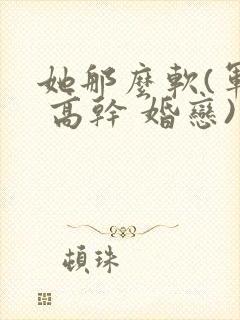 她那麼軟(軍
高幹 婚戀)
頓珠